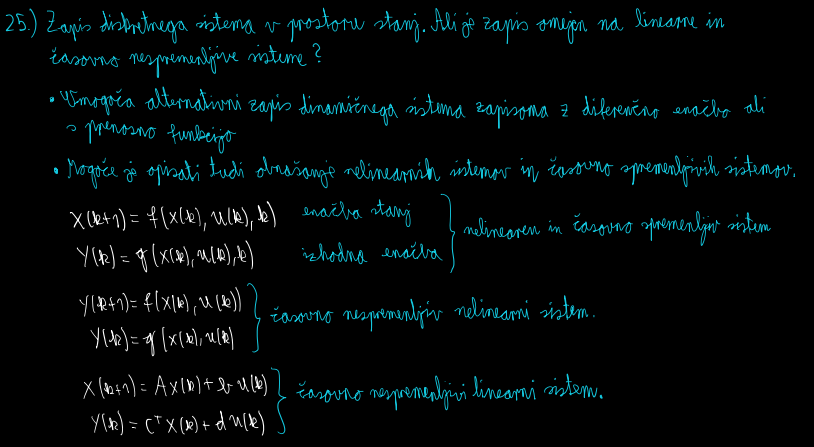 25.) Zapis diskretnega sistema v prostoru stanj. Ali je zapis omejen na linearne in
časovno nespremenljive sisteme?
• Omogoča alternativni zapis dinamičnega sistema zapisoma z diferenčno enačbo ali
s prenosno funkcijo
• Mogoče je opisati tudi obnašanje nelinearnih sistemov in časovno spremenljivih sistemov.
X(k+1) = f(X(k), u(k), k) enačba stanj
Y(k) = g(x(k), u(k), k) izhodna enačba
nelinearen in časovno spremenljiv sistem
Y(k+1) = f(X(k), u(k))
Y(k) = g(x(k), u(k)
časovno nespremenljiv nelinearni sistem.
X(k+1) = A X(k) + b u(k)
Y(k) = Cᵀ X(k) + d u(k)
časovno nespremenljivi linearni sistem.